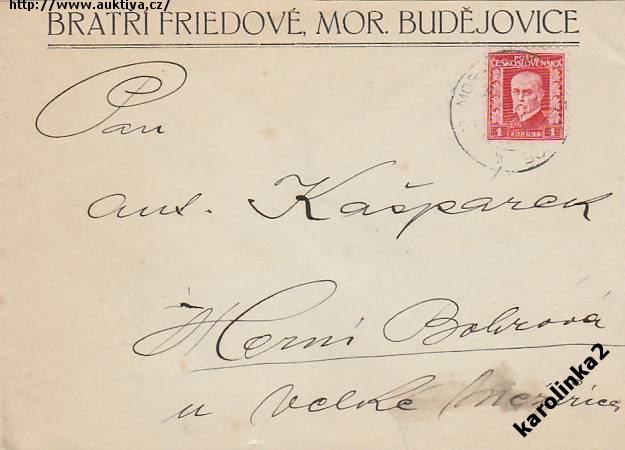 http://www.auktiva.cz/
BRATŘÍ FRIEDOVÉ, MOR. BUDĚJOVICE
POŠTA
ČESKOSLOVENSKÁ
1 KORUNA 1
MOR
BU
Pan
Ant. Kašparek
Horní Bobrová
u Velké Meziříčí
karolinka2